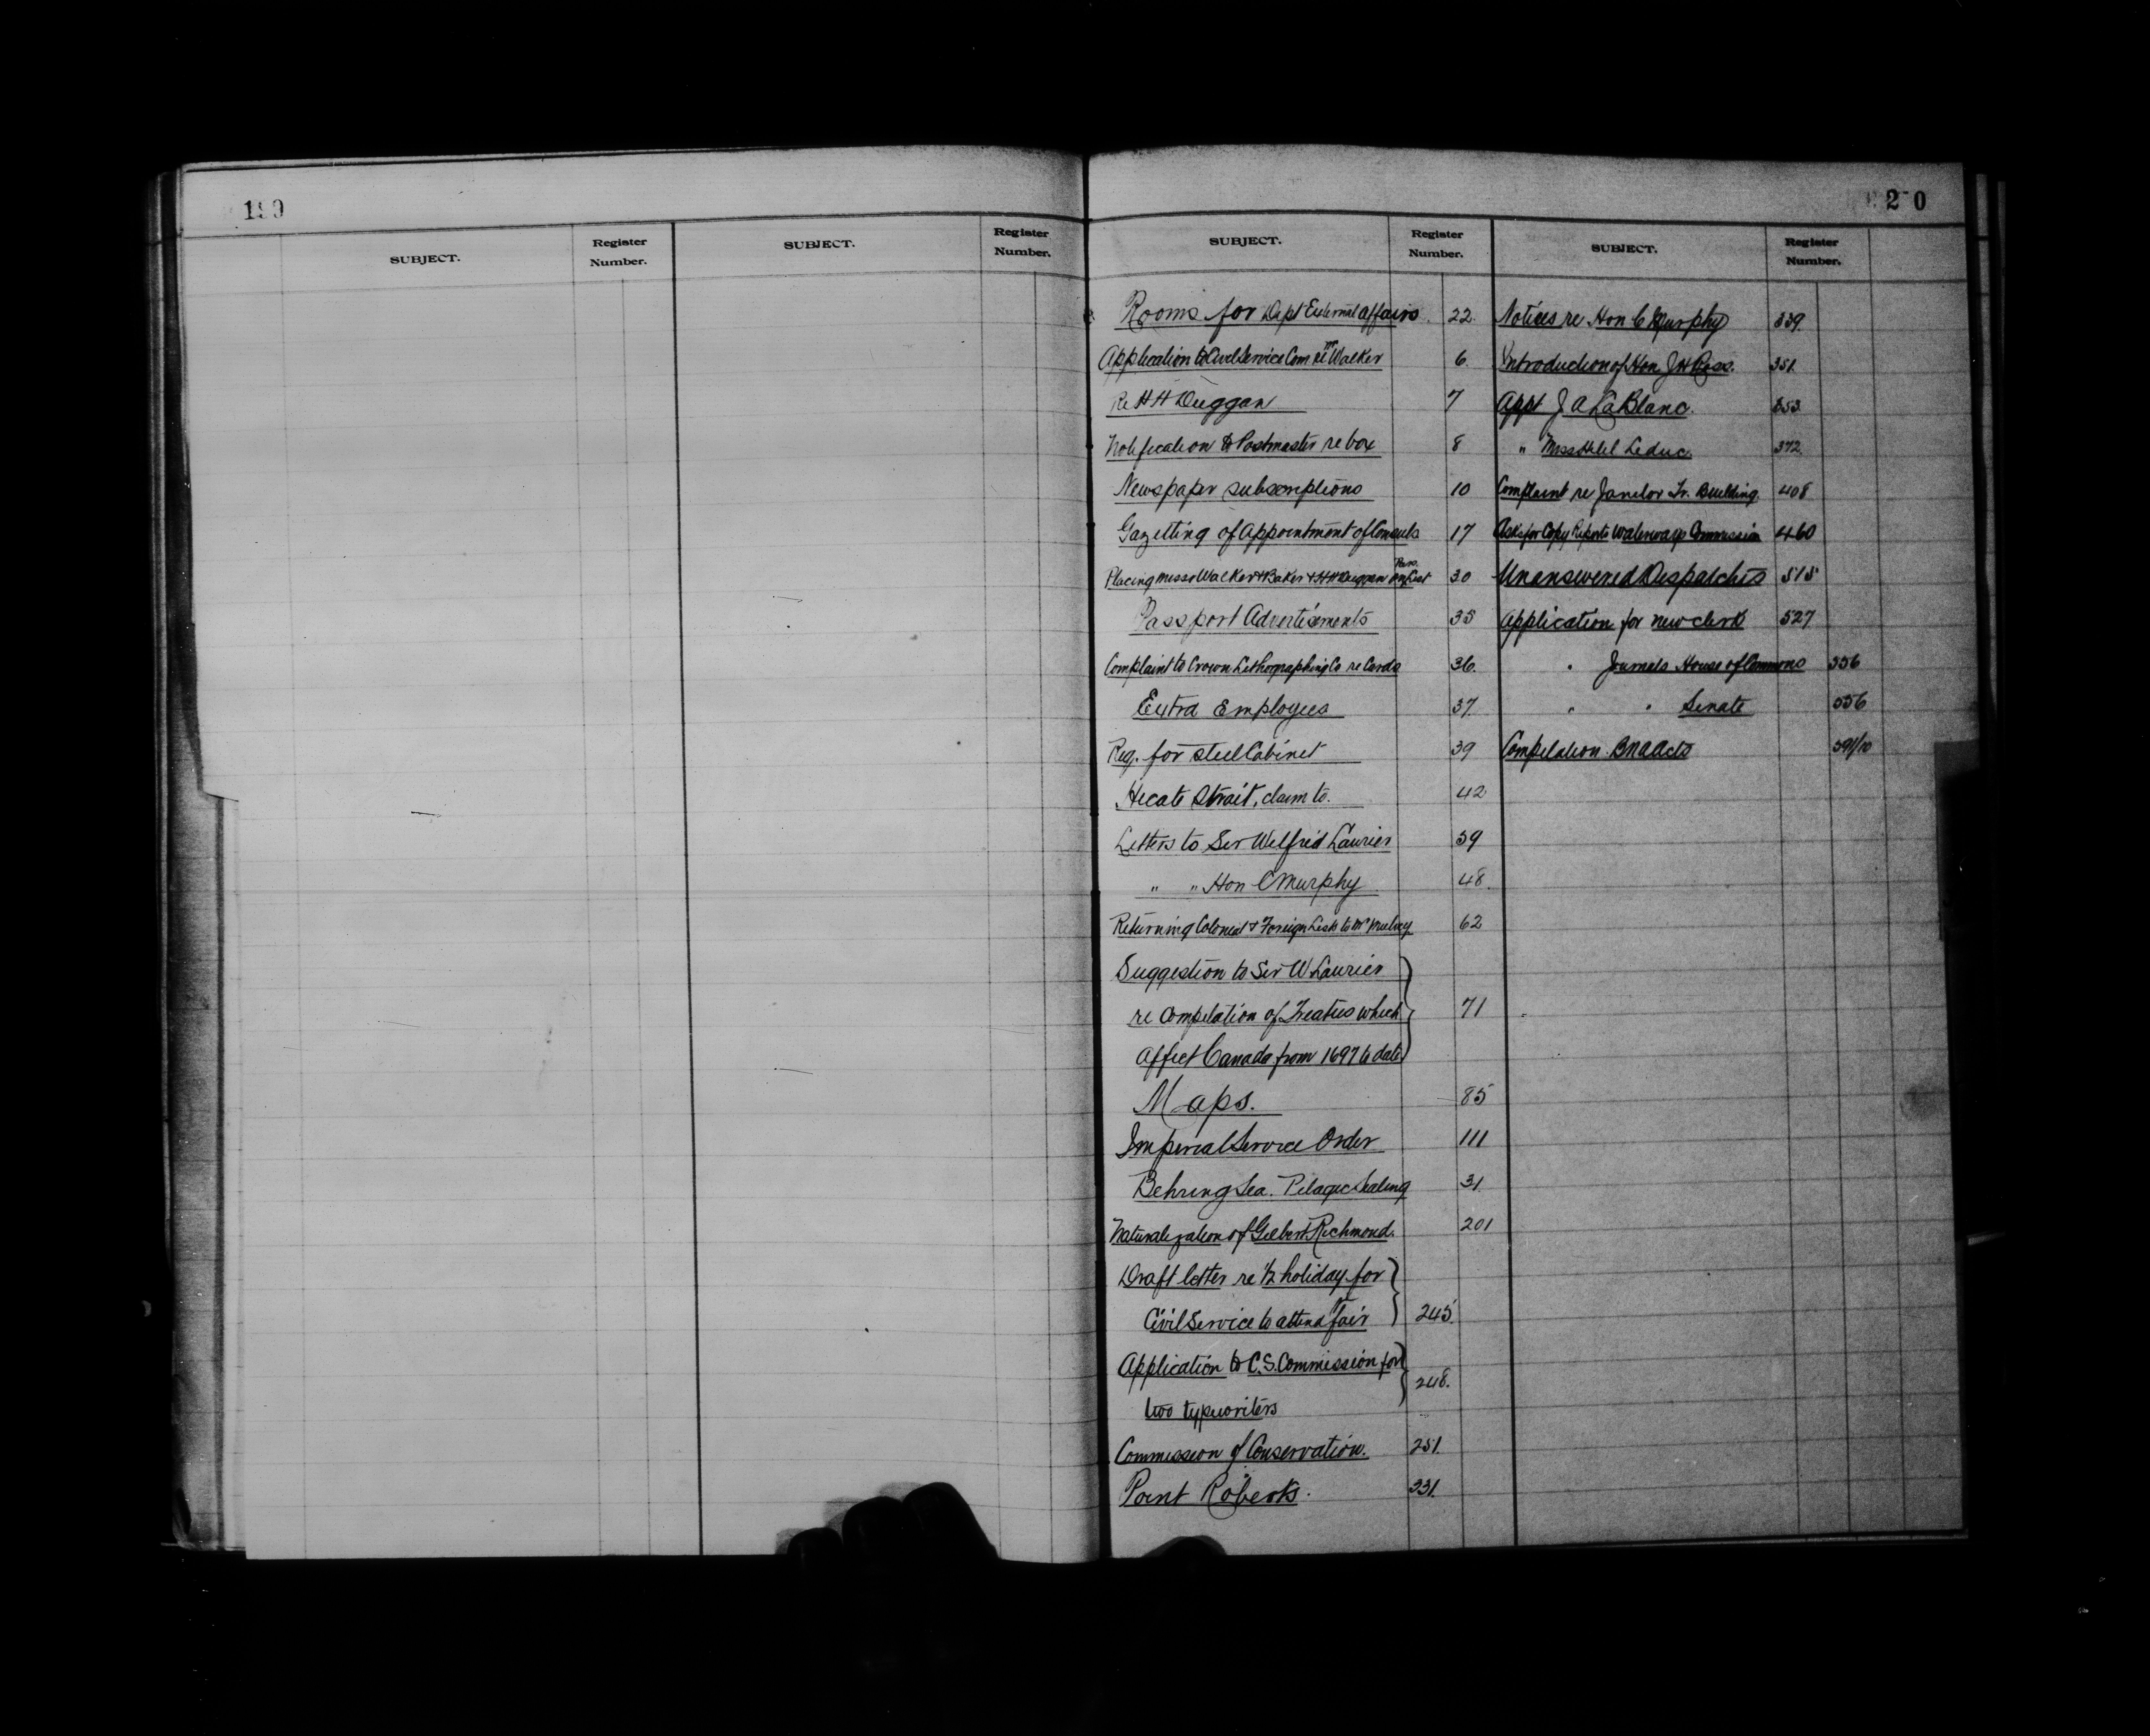 190
SUBJECT.
Register Number.
SUBJECT.
Register Number.
2 0
SUBJECT.
Register Number.
SUBJECT.
Register Number.
Rooms for Dept External Affairs. 22.
Application to Civil Service Com re Mr Walker 6
Re H H Duggan 7
Notification to Postmaster re box 8
Newspaper subscriptions 10
Gazetting of Appointment of Consuls 17
Placing Misses Walker & Baker & H H Duggan on List 30
Passport Advertisments 35
Complaint to Crown Lithographing Co re Cards 36.
Extra Employees 37
Req. for steel Cabinet 39
Hecate Strait, claim to. 42
Letters to Sir Wilfrid Laurier 59
" " Hon C Murphy 48.
Returning Colonial & Foreign Lists to Mr Mulvey 62
Suggestion to Sir W Laurier
re Compilation of Treaties which 71
affect Canada from 1697 to date
Maps. 85
Imperial Service Order 111
Behring Sea. Pelagic Sealing 31
Naturalization of Gilbert Richmond. 201
Draft letter re ½ holiday for
Civil Service to attend fair 245.
Application to C.S. Commission for 248.
two typewriters
Commission of Conservation. 251.
Point Roberts. 331.
Notices re Hon C Murphy 339.
Introduction of Hon J H Ross. 351.
Appt J A LaBlanc. 353
" Miss Leduc. 372.
Complaint re Janitor Tr. Building. 408
Asks for Copy Reports Waterways Commission 460
Unanswered Despatches 515
Application for new clerk 527
" Journals House of Commons 556
" " Senate 556
Compilation B N A Acts 591/10